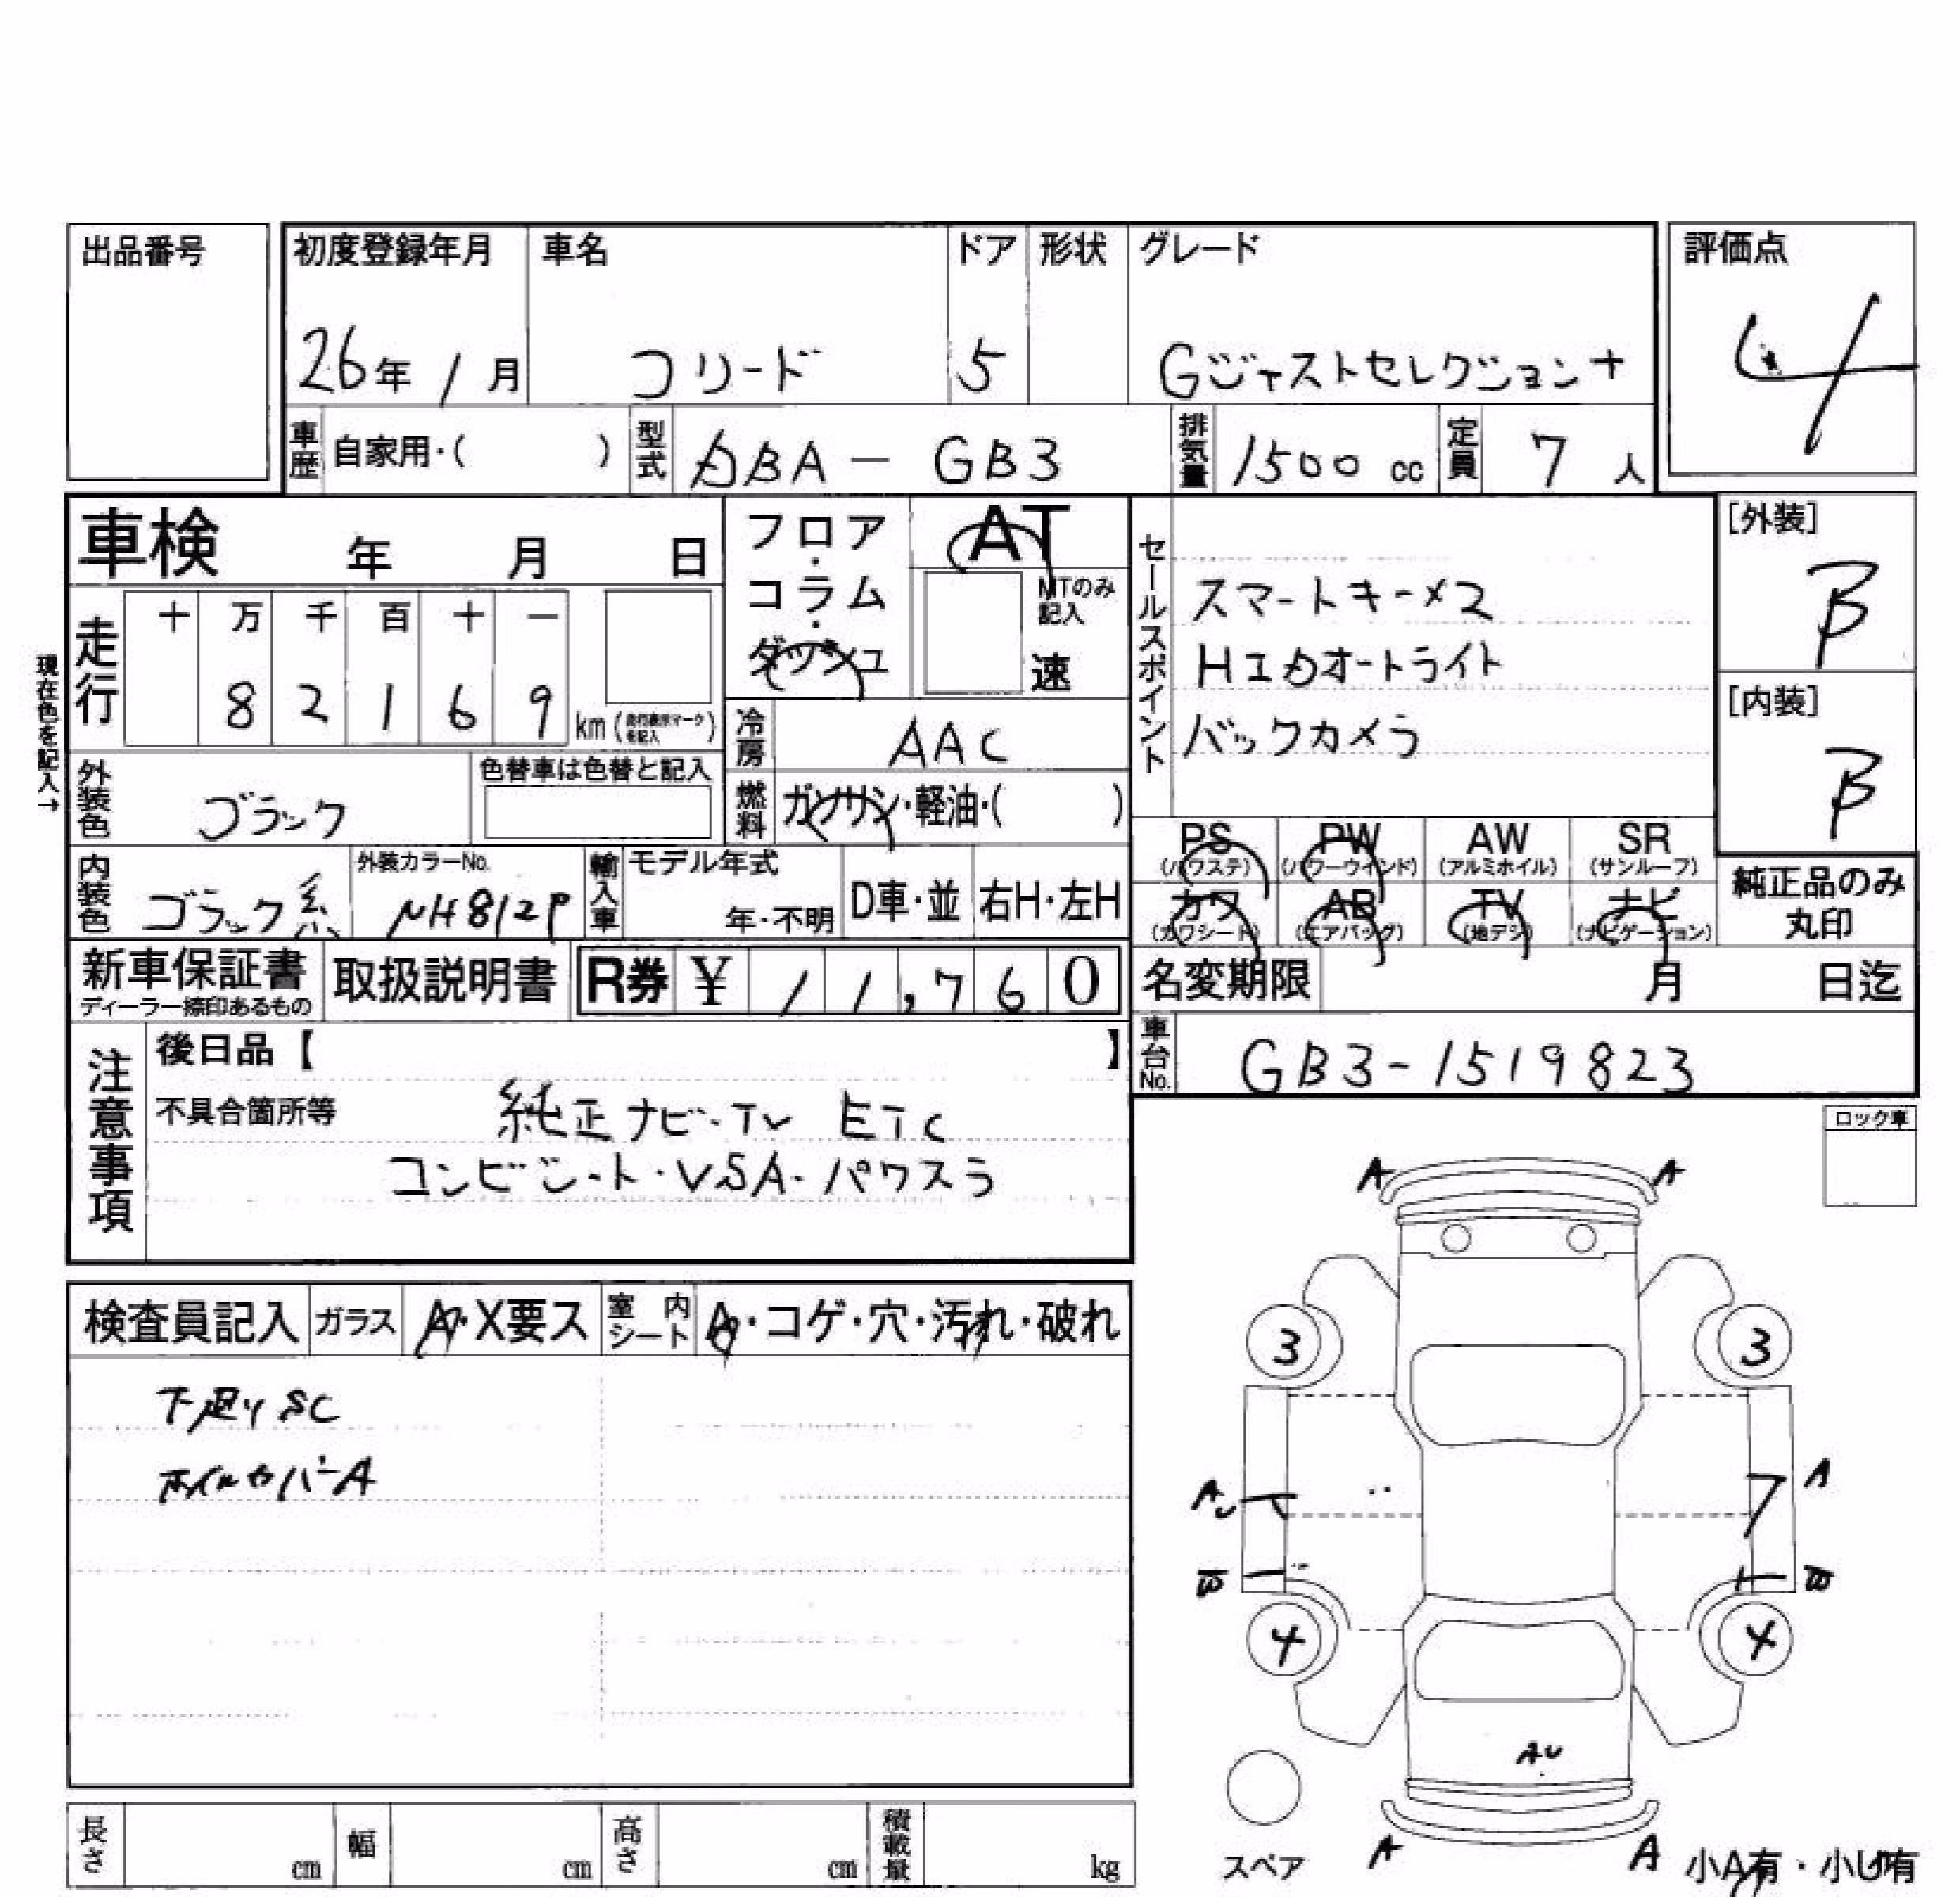 出品番号
初度登録年月 車名 ドア 形状 グレード 評価点
26年 1月 フリード 5 Gジャストセレクション+ 4
車歴 自家用・( ) 型式 DBA－GB3 排気量 1500 cc 定員 7 人
車検 年 月 日
フロア・コラム・ダッシュ
AT
MTのみ記入
速
セールスポイント
スマートキー×2
HIDオートライト
バックカメラ
[外装]
B
[内装]
B
現在色を記入→
走行 十 万 千 百 十 一
8 2 1 6 9 km (走行表示マークを記入)
冷房 AAC
外装色 ブラック 色替車は色替と記入
燃料 ガソリン・軽油・( )
PS (パワステ) PW (パワーウインド) AW (アルミホイル) SR (サンルーフ)
カワ (カワシート) AB (エアバッグ) TV (地デジ) ナビ (ナビゲーション)
純正品のみ
丸印
内装色 ブラック系 外装カラーNo. NH812P 輸入車 モデル年式 年・不明 D車・並 右H・左H
新車保証書 ディーラー捺印あるもの 取扱説明書 R券 ¥ 11,760
名変期限 月 日迄
車台No. GB3-1519823
注意事項
後日品【 】
不具合箇所等 純正ナビ・TV ETC
コンビシート・VSA・パワスラ
ロック車
検査員記入 ガラス A・X要ス 室内シート A・コゲ・穴・汚れ・破れ
下廻りSC
ホイルカバーA
A A
3 3
AU A
W W
4 4
AU
A A
スペア
小A有・小U有
長さ cm 幅 cm 高さ cm 積載量 kg